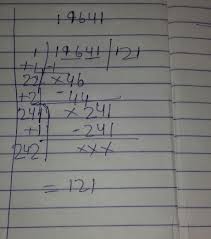 19641
1 | 19641 | 121
+1 -1
22 ×46
+2 -44
241 ×241
+1 -241
242 ×××
= 121